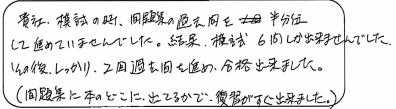 貴社、模試の時、問題集の過去問を 半分位
して進めていませんでした。結果、模試 6問しか出来ませんでした。
その後、しっかり、2回過去問を進め、合格出来ました。
(問題集に本のどこに、出てるかで、復習がすぐ出来ました。)